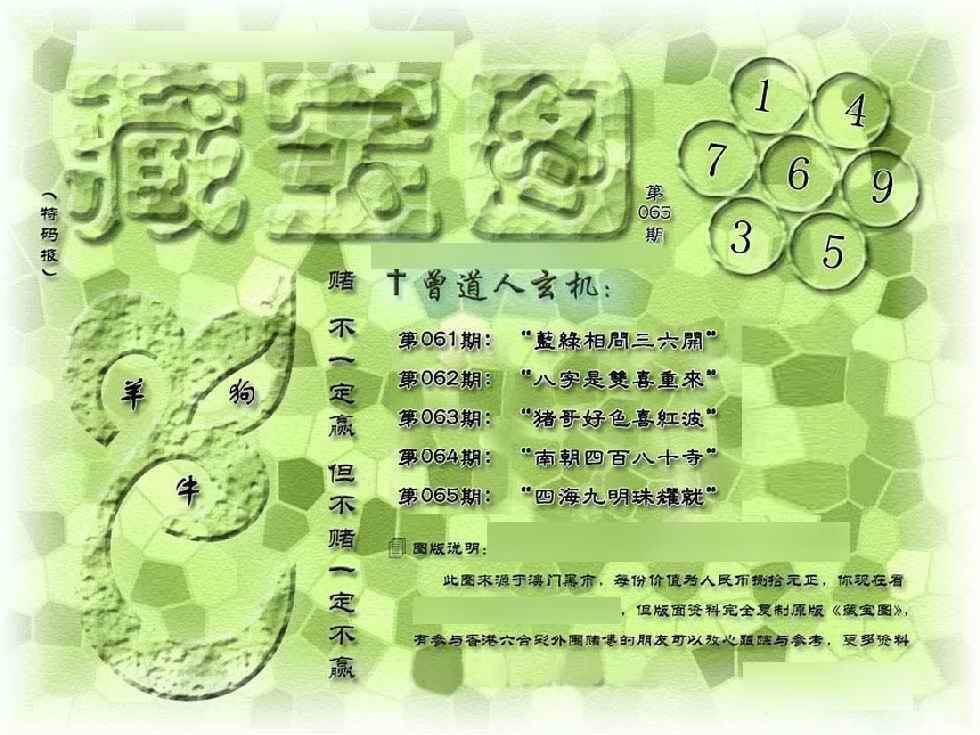 藏宝图
（特码报）
第
065
期
1
4
7
6
9
3
5
羊
狗
牛
赌不一定赢但不赌一定不赢
曾道人玄机：
第061期：“藍綠相間三六開”
第062期：“八字是雙喜重來”
第063期：“猪哥好色喜紅波”
第064期：“南朝四百八十寺”
第065期：“四海九明珠耀就”
图版说明：
此图来源于澳门黑市，每份价值为人民币捌拾元正，你现在看
，但版面资料完全复制原版《藏宝图》，
有参与香港六合彩外围赌博的朋友可以放心跟踪与参考，更多资料